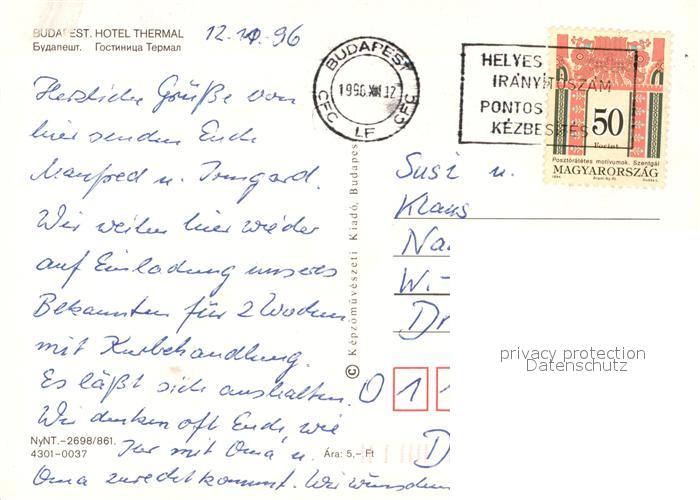 BUDAPEST. HOTEL THERMAL
Будапешт. Гостиница Термал
12.10.96
Herzliche Grüße von
hier senden Euch
Manfred u. Irmgard.
Wir weilen hier wieder
auf Einladung unseres
Bekannten für 2 Wochen
mit Kurbehandlung.
Es läßt sich aushalten.
Wir denken oft Euch, wie
Ihr mit Oma u.
Oma zurechtkommt. Wir wünschen
NyNT.–2698/861.
4301–0037
Ára: 5,– Ft
© Képzőművészeti Kiadó, Budapest
BUDAPEST
CFC
CFC
LF
HELYES
IRÁNYÍTÓSZÁM
PONTOS
KÉZBESÍTÉS
50
Forint
Posztórátétes motívumok. Szentgál
MAGYARORSZÁG
1994
Susi u.
Klaus
Na
W.-
Dr
O 1 1
D
privacy protection
Datenschutz